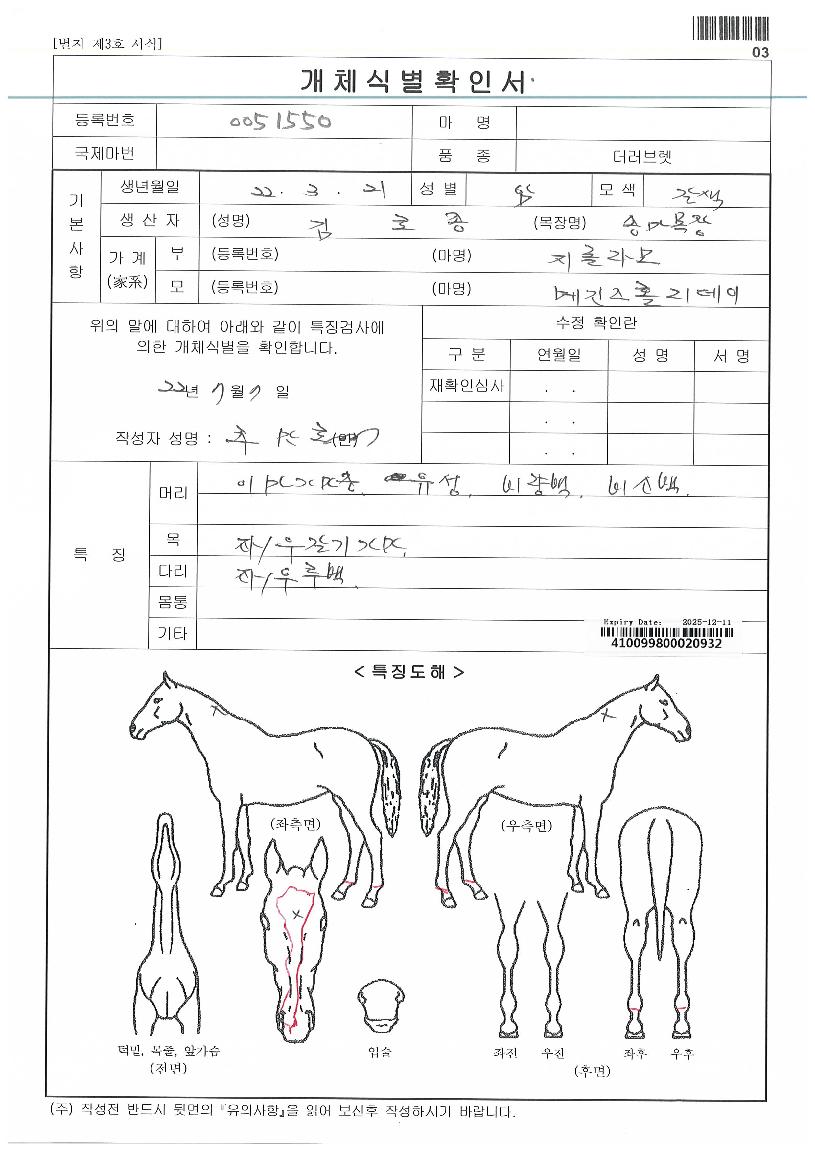 [별지 제3호 서식]
03
개체식별확인서
등록번호 0051550 마 명
국제마번 품 종 더러브렛
기본사항
생년월일 22. 3. 21 성별 암 모색 갈색
생산자 (성명) 김 호 종 (목장명) 송마목장
가계(家系) 부 (등록번호) (마명) 지롤라모
모 (등록번호) (마명) 메긴스홀리데이
위의 말에 대하여 아래와 같이 특징검사에
의한 개체식별을 확인합니다.
22년 7월 7일
작성자 성명 : (인)
수정 확인란
구 분 연월일 성 명 서 명
재확인심사 . .
. .
. .
특 징
머리 유성, 비량백, 비신백.
목 좌/우
다리 좌/우후백.
몸통
기타
Expiry Date: 2025-12-11
410099800020932
< 특징도해 >
(좌측면) (우측면)
턱밑, 목줄, 앞가슴
(전면)
입술
좌전 우전 좌후 우후
(후면)
(주) 작성전 반드시 뒷면의 『유의사항』을 읽어 보신후 작성하시기 바랍니다.